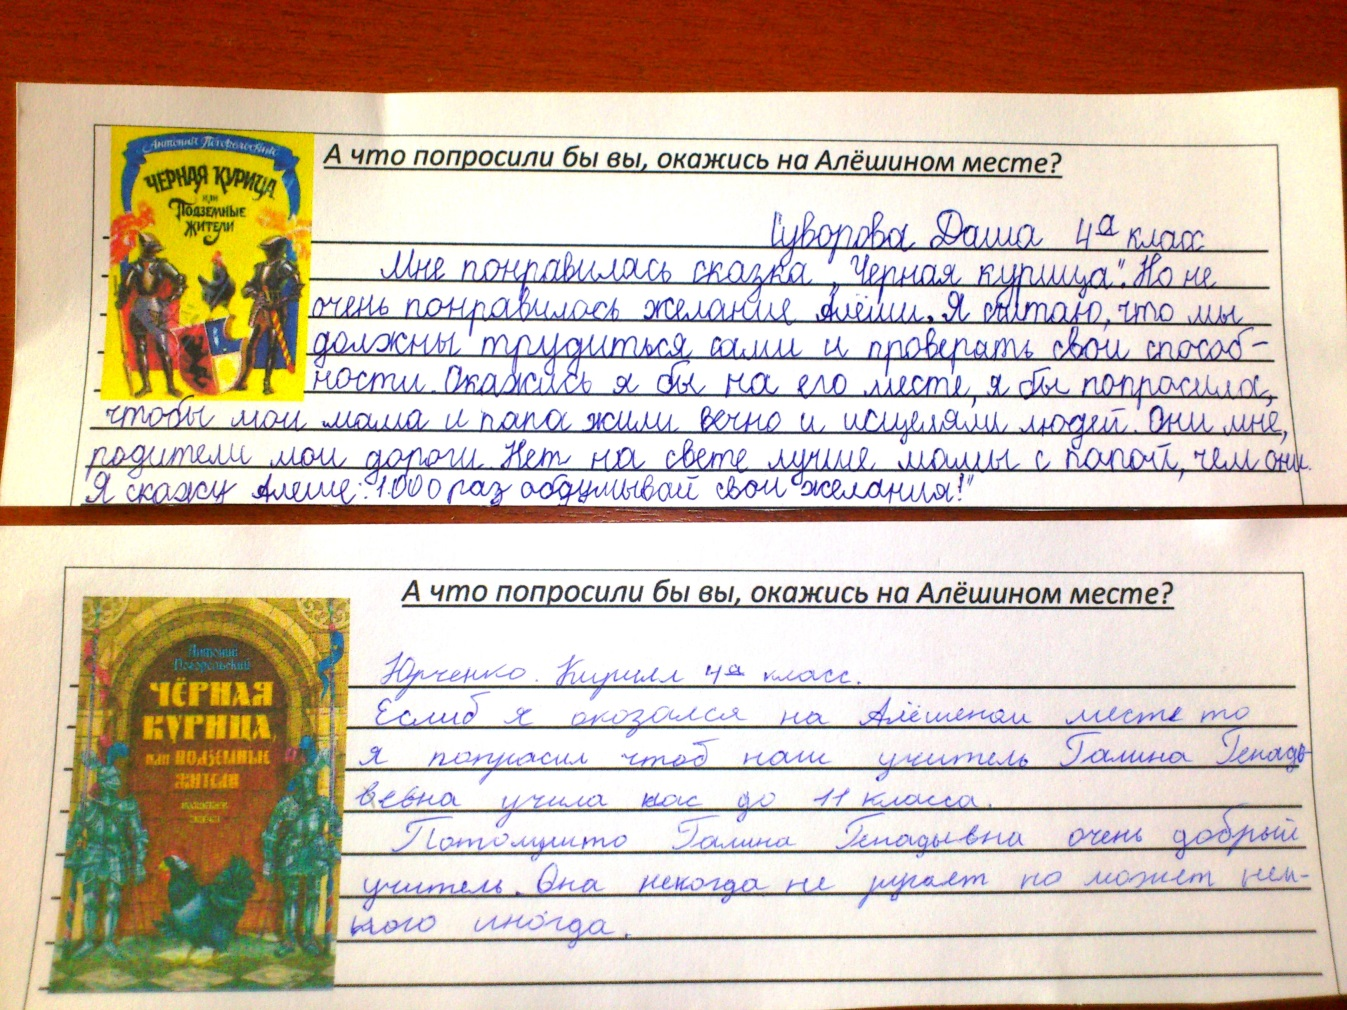 Антоний Погорельский
ЧЕРНАЯ КУРИЦА
или
Подземные
жители
А что попросили бы вы, окажись на Алёшином месте?
Суворова Даша 4а класс
Мне понравилась сказка „Черная курица“. Но не
очень понравилось желание Алёши. Я считаю, что мы
должны трудиться сами и проверять свои способ-
ности. Окажись я бы на его месте, я бы попросила,
чтобы мои мама и папа жили вечно и исцеляли людей. Они мне,
родители мои дороги. Нет на свете лучше мамы с папой, чем они.
Я скажу Алеше: "1000 раз обдумывай свои желания!"
А что попросили бы вы, окажись на Алёшином месте?
Антоний
Погорельский
ЧЁРНАЯ
КУРИЦА,
или ПОДЗЕМНЫЕ
ЖИТЕЛИ
Юрченко. Кирилл 4а класс.
Еслиб я оказался на Алёшеном месте то
я попрасил чтоб наш учитель Галина Генадь-
евна учила нас до 11 класса.
Потомушто Галина Генадьевна очень добрый
учитель. Она некогда не ругает но может нем-
ного иногда.